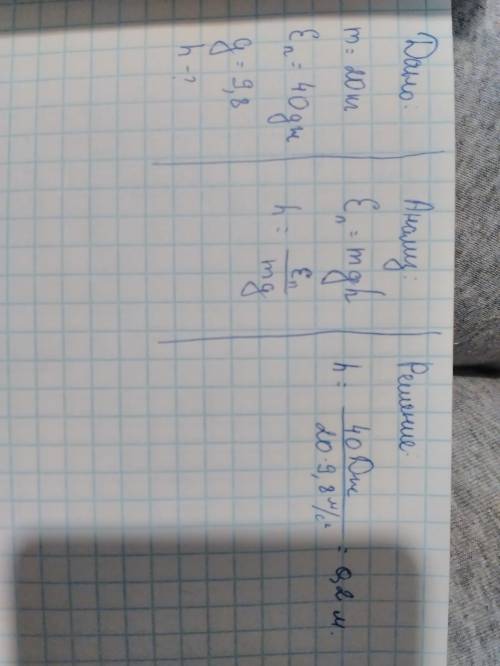 Дано:
m = 20 т
Eₙ = 40 дж
g = 9,8
h - ?
Анализ:
Eₙ = mgh
h = Eₙ / mg
Решение:
h = 40 Дж / 20 · 9,8 м/с² = 0,2 м.